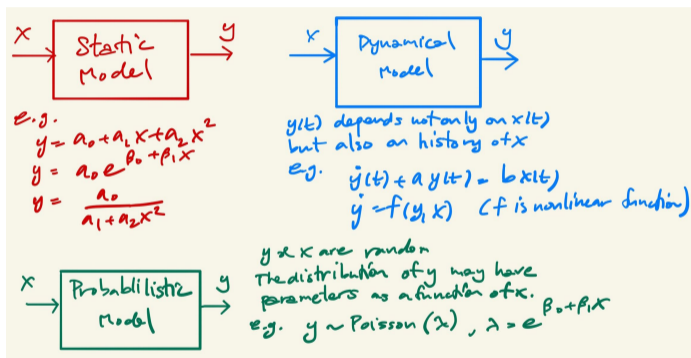 x
Static
Model
y
e.g.
y = a₀ + a₁x + a₂x²
y = a₀e^{β₀ + β₁x}
y = a₀ / (a₁ + a₂x²)
x
Dynamical
Model
y
y(t) depends not only on x(t)
but also on history of x
eg. ẏ(t) + a y(t) = b x(t)
ẏ = f(y, x) (f is nonlinear function)
x
Probablilistic
Model
y
y & x are random
The distribution of y may have
parameters as a function of x.
e.g. y ~ Poisson(λ), λ = e^{β₀ + β₁x}